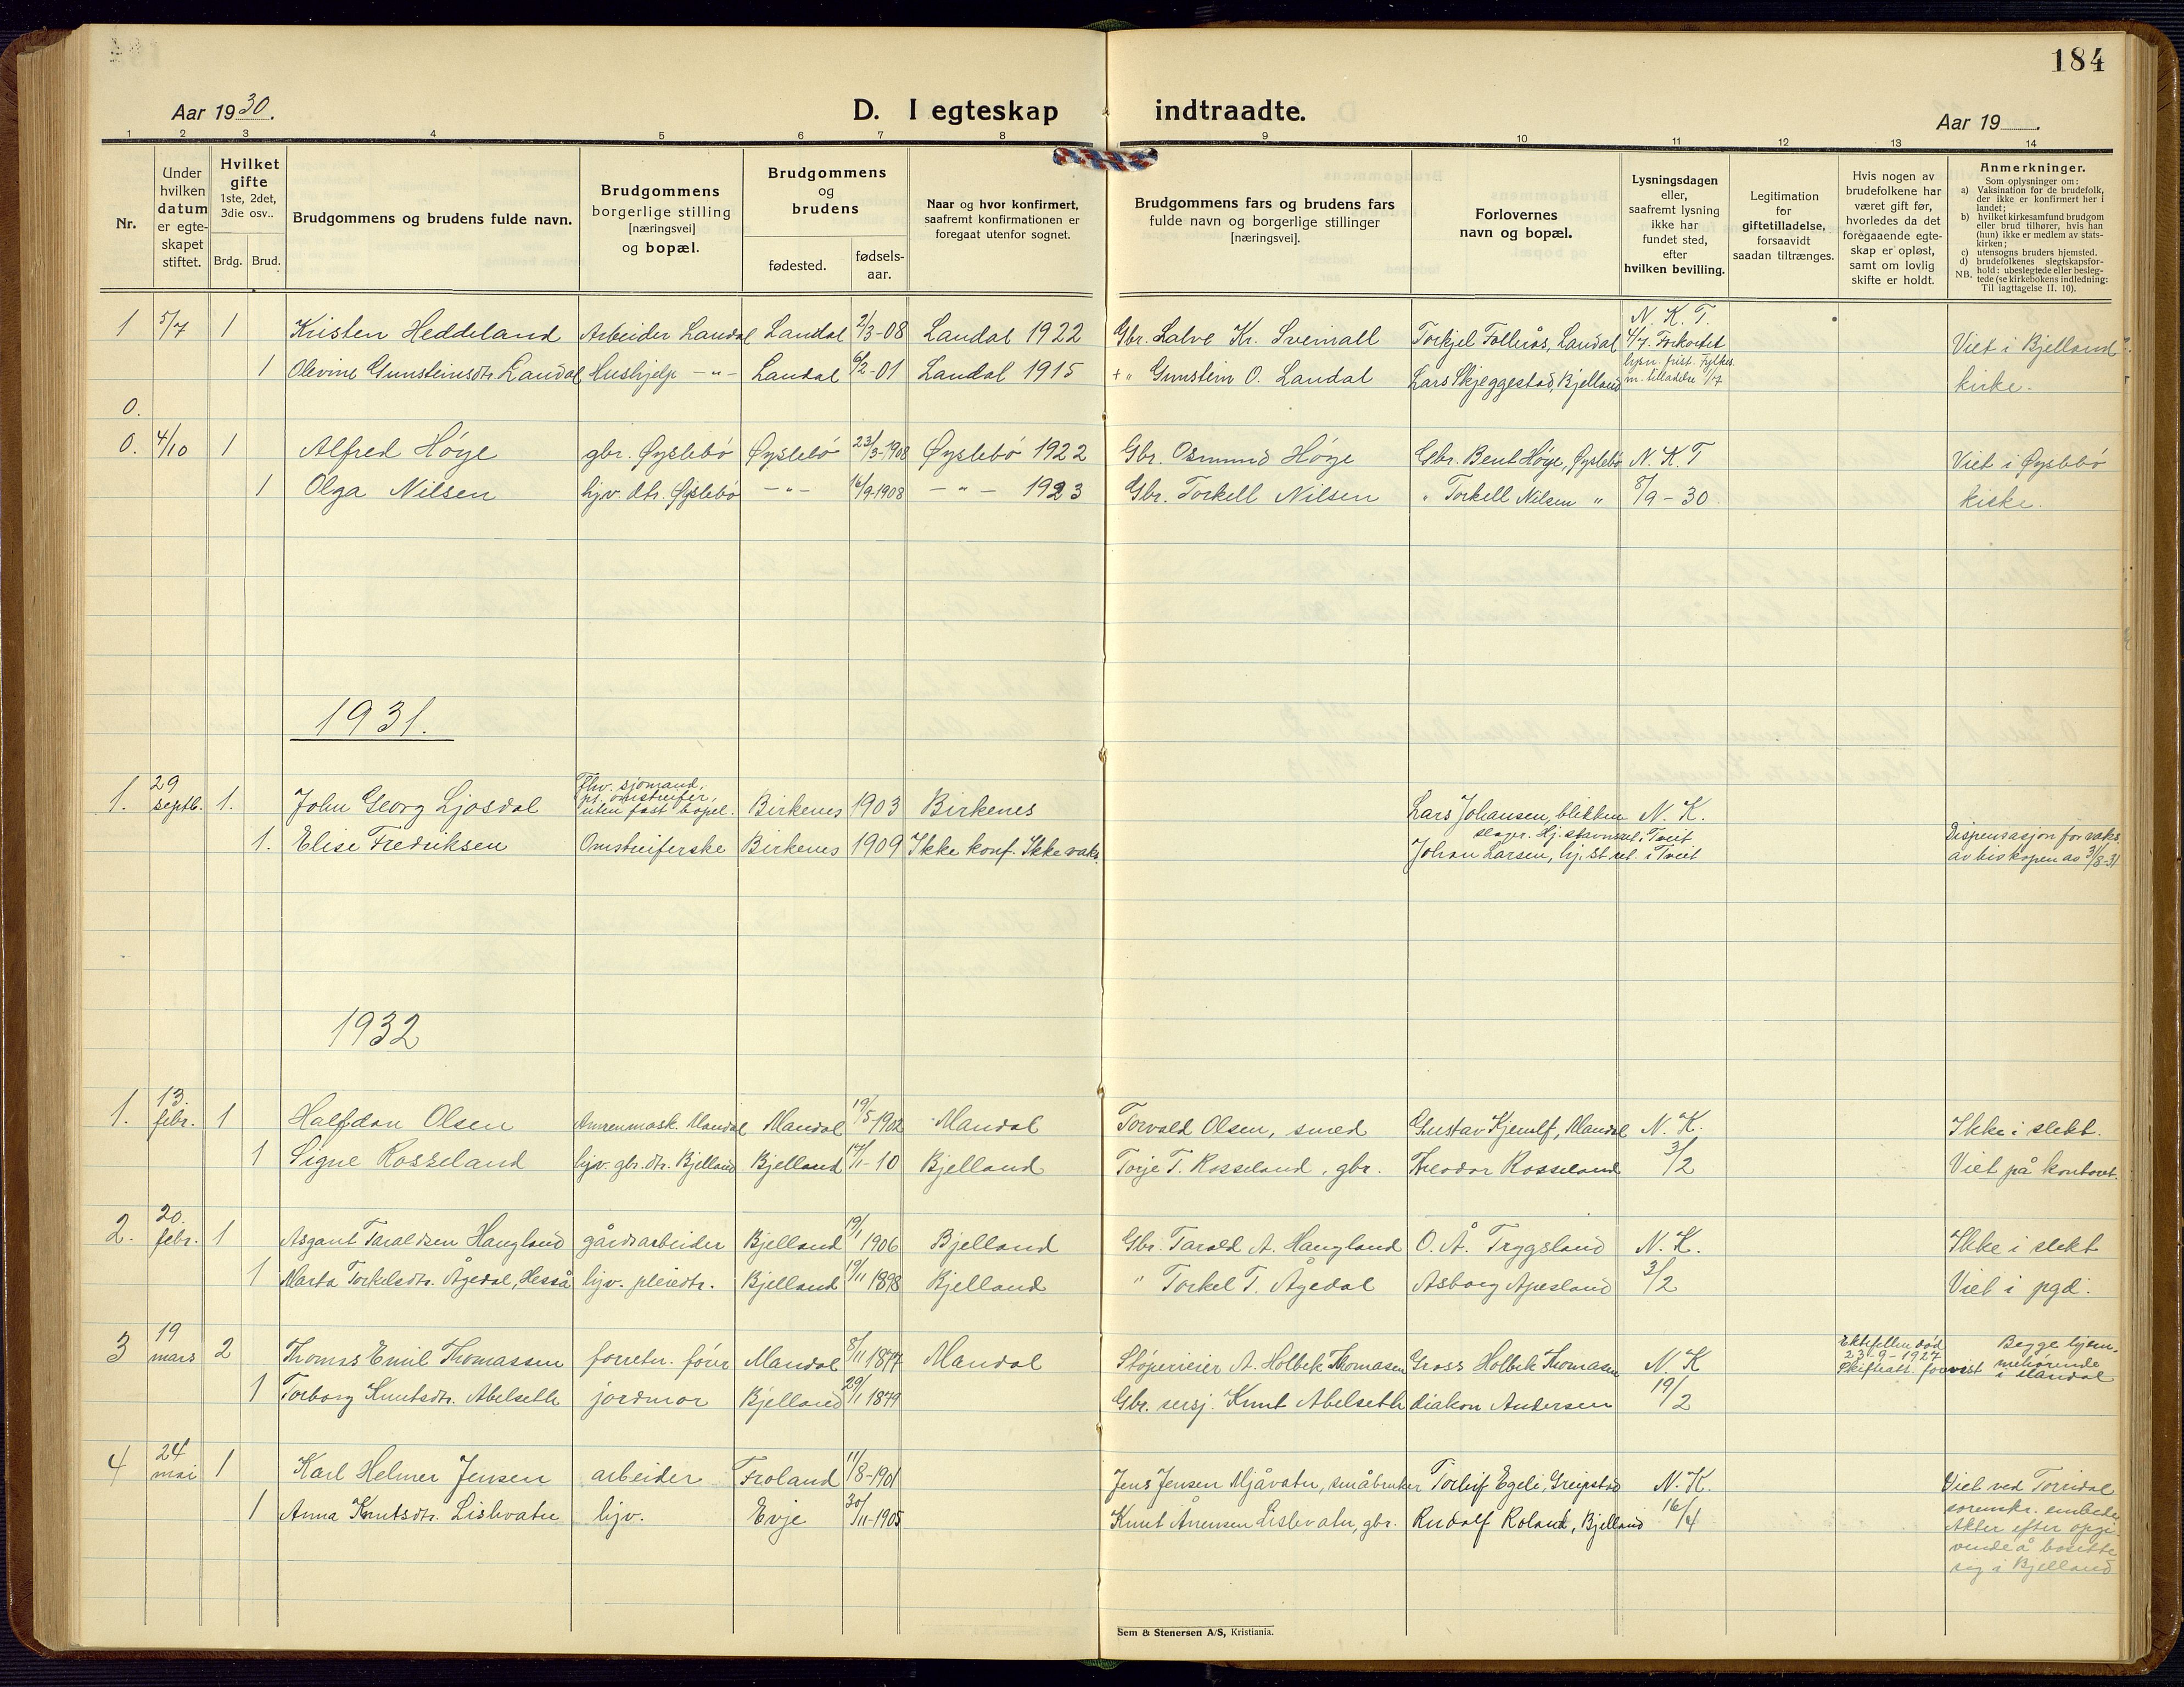 184
Aar 1930.
D. I egteskap indtraadte.
Aar 19 .
1 2 3 4 5 6 7 8 9 10 11 12 13 14
Nr.
Under hvilken datum er egte-skapet stiftet.
Hvilket gifte 1ste, 2det, 3die osv..
Brdg. Brud.
Brudgommens og brudens fulde navn.
Brudgommens borgerlige stilling [næringsvei] og bopæl.
Brudgommens og brudens
fødested. fødsels-aar.
Naar og hvor konfirmert, saafremt konfirmationen er foregaat utenfor sognet.
Brudgommens fars og brudens fars fulde navn og borgerlige stillinger [næringsvei].
Forlovernes navn og bopæl.
Lysningsdagen eller, saafremt lysning ikke har fundet sted, efter hvilken bevilling.
Legitimation for giftetilladelse, forsaavidt saadan tiltrænges.
Hvis nogen av brudefolkene har været gift før, hvorledes da det foregaaende egte-skap er opløst, samt om lovlig skifte er holdt.
Anmerkninger.
Som oplysninger om:
a) Vaksination for de brudefolk, der ikke er konfirmert her i landet;
b) hvilket kirkesamfund brudgom eller brud tilhører, hvis han (hun) ikke er medlem av stats-kirken;
c) utensogns bruders hjemsted.
d) brudefolkenes slegtskapsfor-hold: ubeslegtede eller besleg-tede (se kirkebokens indledning:
NB. Til iagttagelse II. 10).
1 5/7 1 Kristen Heddeland Arbeider Laudal Laudal 2/3-08 Laudal 1922 Gbr. Salve Kr. Sveinall Torkjel Follerås, Laudal N. K. T. 4/7. Forkortet Viet i Bjelland
1 Olevine Gunsteinsdtr. Laudal Hushjelp -"- Laudal 6/2-01 Laudal 1915 + " Gunstein O. Laudal Lars Skjeggestad, Bjelland lysn. frist. Fylkes m. tilladelse 1/7 kirke.
0.
0. 4/10 1 Alfred Høye gbr. Øyslebø Øyslebø 23/3-1908 Øyslebø 1922 Gbr. Osmund Høye Gbr. Bent Høye, Øyslebø N. K. T Viet i Øyslebø
1 Olga Nilsen hjv. dtr. Øyslebø -"- 16/9-1908 -"- 1923 Gbr. Torkell Nilsen " Torkell Nilsen " 8/9-30 kirke.
1931.
1. 29 septb. 1. John Georg Ljosdal Fhv. sjømand, pt. omstreifer, uten fast bopel. Birkenes 1903 Birkenes Lars Johansen, blikken slager. Hj. stavnsret. Tveit N. K.
1. Elise Fredriksen Omstreiferske Birkenes 1909 Ikke konf. Ikke vaks. Johan Larsen, hj. st. ret. i Tveit Dispensasjon for vaks. av biskopen av 3/8-31
1932
1. 13. febr. 1 Halfdan Olsen Mandal Mandal 19/5 1902 Mandal Torvald Olsen, smed Gustav Mandal N. K. Ikke i slekt.
1 Signe Rosseland hjv. gbr. dtr. Bjelland Bjelland 14/1-10 Bjelland Torje T. Rosseland, gbr. Theodor Rosseland 3/2 Viet på kontoret.
2. 20. febr. 1 Asgaut Taraldsen Haugland gårdsarbeider Bjelland 19/1 1906 Bjelland Gbr. Tarald A. Haugland O. Å. Tryggsland N. K. Ikke i slekt
1 Marta Torkelsdtr. Ågedal, Hesså hjv. pleiedtr. Bjelland 19/11 1898 Bjelland " Torkel T. Ågedal Asborg Apesland 3/2 Viet i pgd.
3 19 mars 2 Thomas Emil Thomassen forretn. fører Mandal 8/11 1877 Mandal Støperieier A. Holbek Thomasen Gross Holbek Thomasen N. K Ektefellen død 23-9-1927 Skifteatt. forevist Begge hjem-mehørende i Mandal
1 Torborg Knutsdtr. Abelseth jordmor Bjelland 29/1 1879 Gbr. sersj. Knut Abelseth diakon Andersen 19/2
4 24 mai 1 Karl Helmer Jensen arbeider Froland 11/8-1901 Jens Jensen Mjåvatn, småbruker Torleif Egeli, Greipstad N. K. Viet ved Torridal
1 Anna Knutsdtr. Lislevatn hjv. Evje 30/11-1905 Knut Ånensen Lislevatn, gbr. Rudolf Roland, Bjelland 16/4 sorenskr. embede
Akter efter opgi-
vende å bosette
sig i Bjelland
Sem & Stenersen A/S, Kristiania.